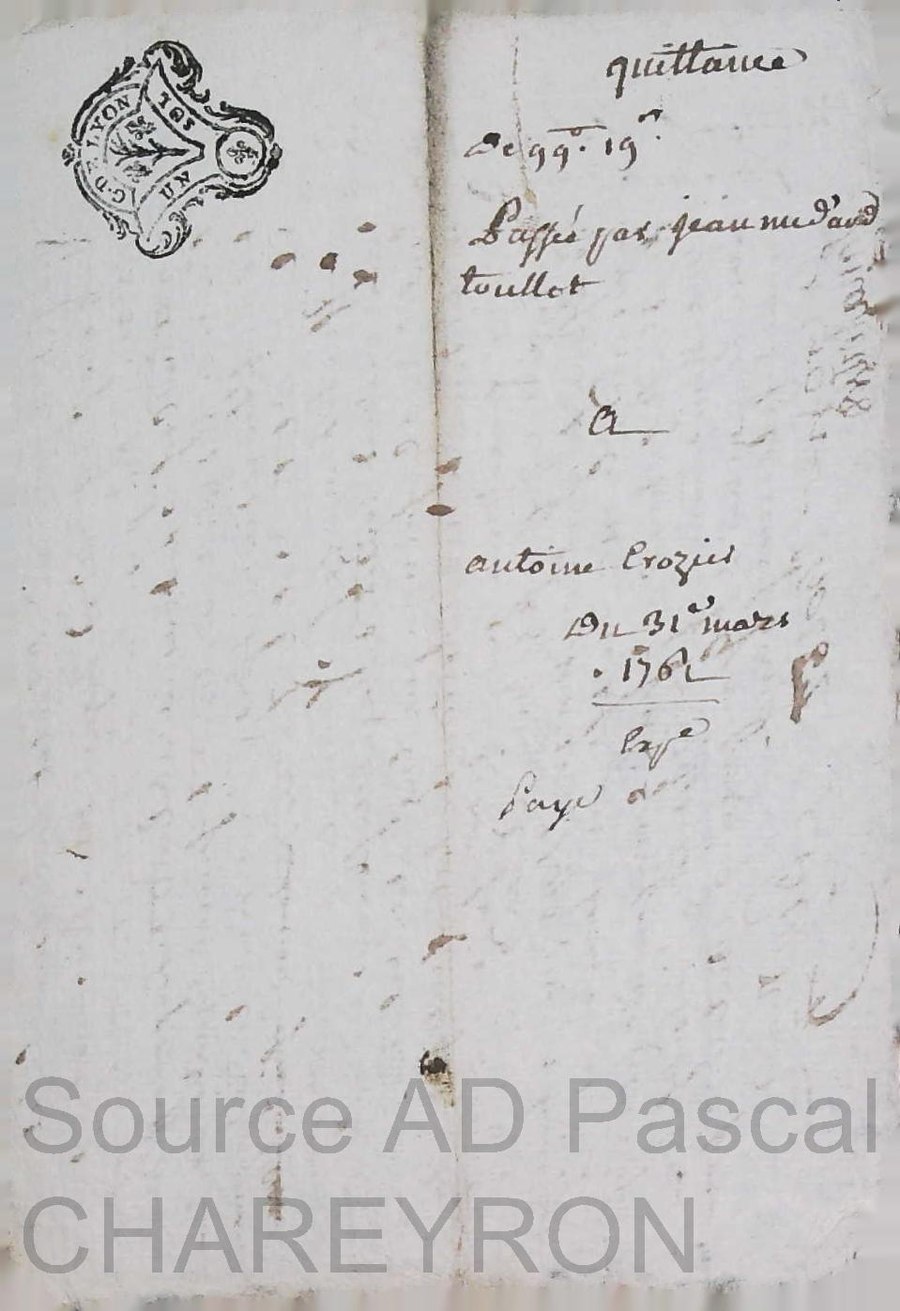 G. DE LYON
UN SOL
quittance
De 99# 19s
Passée par jean medard
toullot
a
antoine Crozier
Du 31e mars
1762
Expe
Paye
Source AD Pascal
CHAREYRON